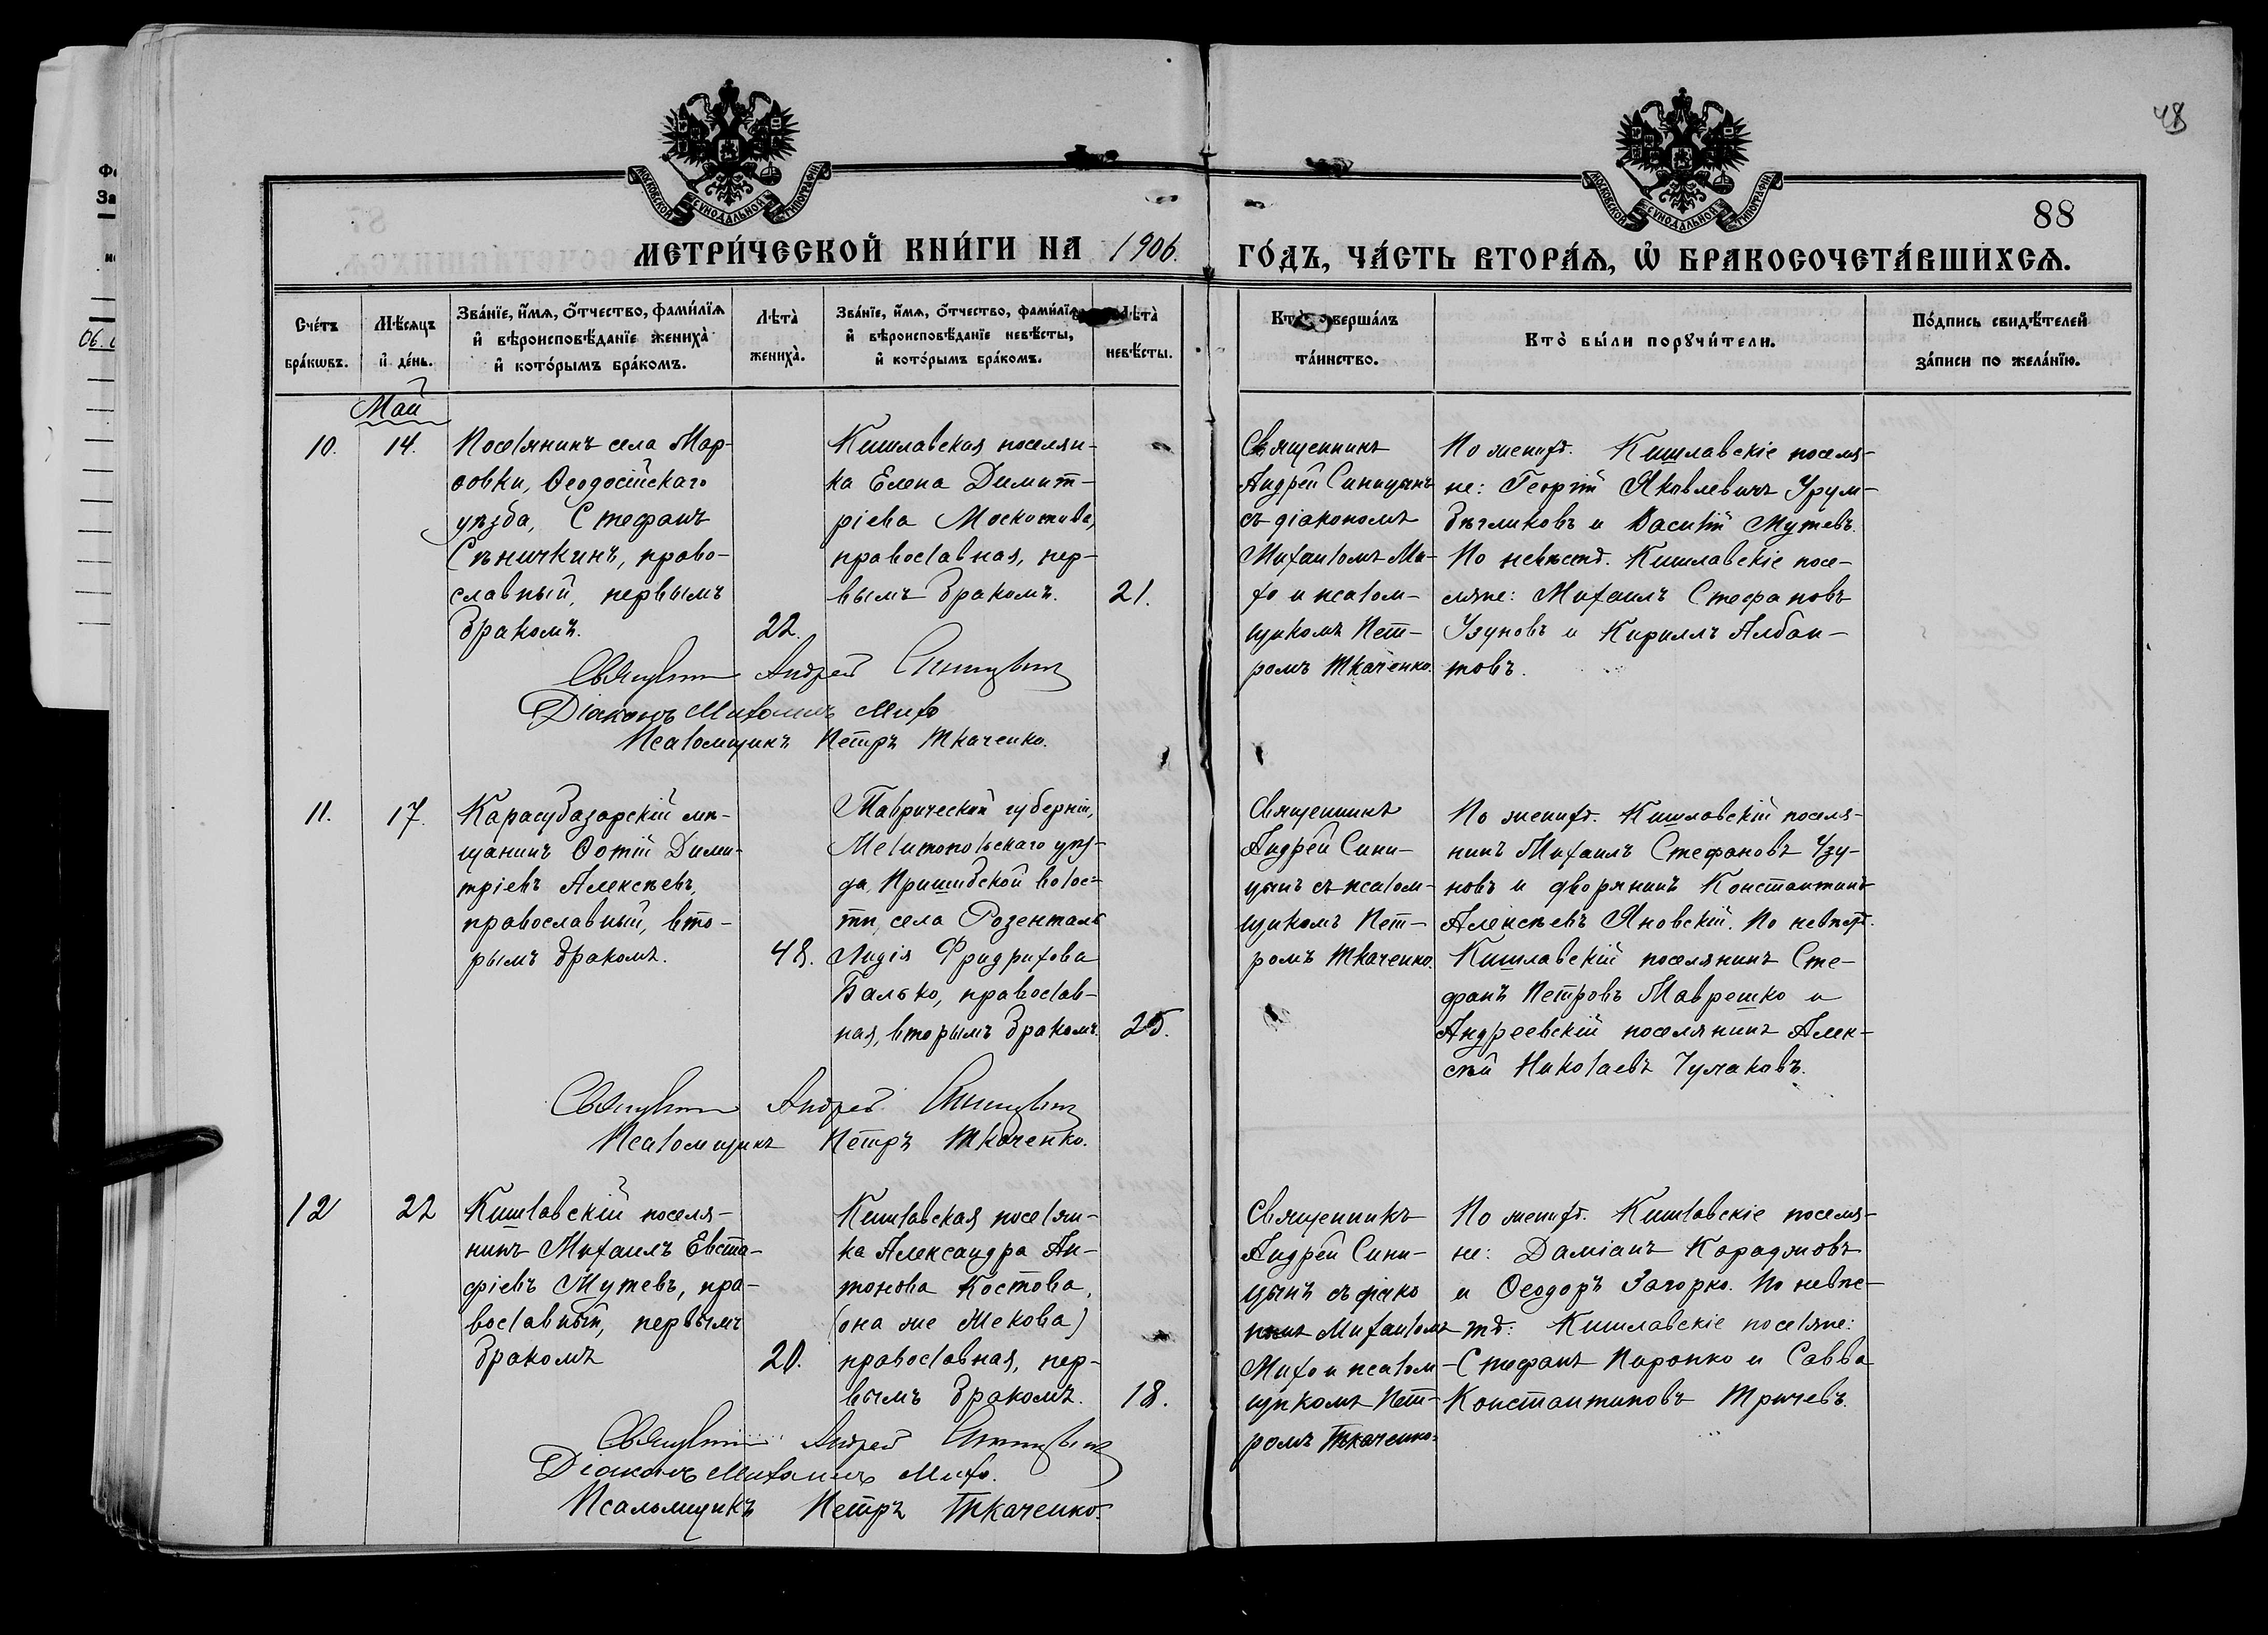 48
88
МОСКОВСКОЙ СѴНОДАЛЬНОЙ ТИПОГРАФІИ
МОСКОВСКОЙ СѴНОДАЛЬНОЙ ТИПОГРАФІИ
МЕТРИ́ЧЕСКОЙ КНИ́ГИ НА 1906. ГО́ДЪ, ЧА́СТЬ ВТОРА́Ѧ, Ѿ БРАКОСОЧЕТА́ВШИХСѦ.
Сче́тъ бра́кѡвъ.
Мѣ́сяцъ и҆ де́нь.
Зва́нїе, и҆́мѧ, ѻ҆́тчество, фами́лїѧ
и҆ вѣроисповѣ́данїе жениха̀
и҆ кото́рымъ бра́комъ.
Лѣта̀ жениха̀.
Зва́нїе, и҆́мѧ, ѻ҆́тчество, фами́лїѧ
и҆ вѣроисповѣ́данїе невѣ́сты,
и҆ кото́рымъ бра́комъ.
Лѣта̀ невѣ́сты.
Кто̀ соверша́лъ
та́инство.
Кто̀ бы́ли порꙋчи́тели.
По́дпись свидѣ́телей
за́писи по жела́нїю.
Май
10.
14.
Поселянинъ села Мар-
фовки, Ѳеодосійскаго
уѣзда, Стефанъ
Сѣничкинъ, право-
славный, первымъ
бракомъ.
22.
Кишлавская поселян-
ка Елена Димит-
ріева
православная, пер-
вымъ бракомъ.
21.
Священникъ
Андрей Синицынъ
съ діакономъ
Михаиломъ Ми-
хо и псалом-
щикомъ Пет-
ромъ Ткаченко.
По женихѣ. Кишлавскіе поселя-
не: Георгій Яковлевичъ Урум-
бѣгликовъ и Василій Мутевъ.
По невѣстѣ. Кишлавскіе посе-
ляне: Михаилъ Стефановъ
Узуновъ и Кириллъ Албан-
товъ.
Священникъ Андрей Синицынъ
Діаконъ Михаилъ Михо
Псаломщикъ Петръ Ткаченко.
11.
17.
Карасубазарскій мѣ-
щанинъ Фотій Дими-
тріевъ Алексѣевъ,
православный, вто-
рымъ бракомъ.
48.
Таврической губерніи,
Мелитопольскаго уѣз-
да, Пришибской волос-
ти, села Розенталь
Лидія Фридрихова
Балько, православ-
ная, вторымъ бракомъ.
25.
Священникъ
Андрей Сини-
цынъ съ псалом-
щикомъ Пет-
ромъ Ткаченко.
По женихѣ. Кишлавскій поселя-
нинъ Михаилъ Стефановъ Узу-
новъ и дворянинъ Константинъ
Алексѣевъ Яновскій. По невѣстѣ.
Кишлавскій поселянинъ Сте-
фанъ Петровъ Маврешко и
Андреевскій поселянинъ Алек-
сѣй Николаевъ Чумаковъ.
Священникъ Андрей Синицынъ
Псаломщикъ Петръ Ткаченко.
12
22
Кишлавскій поселя-
нинъ Михаилъ Евста-
фіевъ Мутевъ, пра-
вославный, первымъ
бракомъ
20.
Кишлавская поселян-
ка Александра Ан-
тонова Костова,
(она же Жекова)
православная, пер-
вымъ бракомъ.
18.
Священникъ
Андрей Сини-
цынъ съ діако
номъ Михаиломъ
Михо и псалом-
щикомъ Пет-
ромъ Ткаченко.
По женихѣ. Кишлавскіе поселя-
не: Даміанъ Караджовъ
и Ѳеодоръ Загорко. По невѣс-
тѣ: Кишлавскіе поселяне:
Стефанъ Пиронко и Савва
Константиновъ Тричевъ.
Священникъ Андрей Синицынъ
Діаконъ Михаилъ Михо.
Псаломщикъ Петръ Ткаченко.